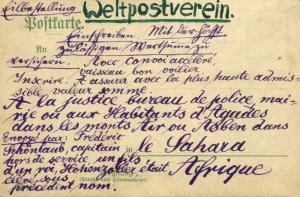 Eilbestellung Weltpostverein.
Postkarte.
Einschreiben. Mit der höfft
An zulässigen Wertsume zu
versichern. Avec convoi accéleré,
vaisseau bon voilier
Inscrire. A assurer avec la plus haute admis-
sible valeur somme.
A la justice bureau de police, mai-
rie où aux Habitants d'Agades
dans les monts Air ou Asben dans
Envoyé par: Fréderic
Schönlaub, capitain le Sahara
hors de service un fils
d'un roi, Hohenzoller était Afrique
élévé sous
précédent nom.